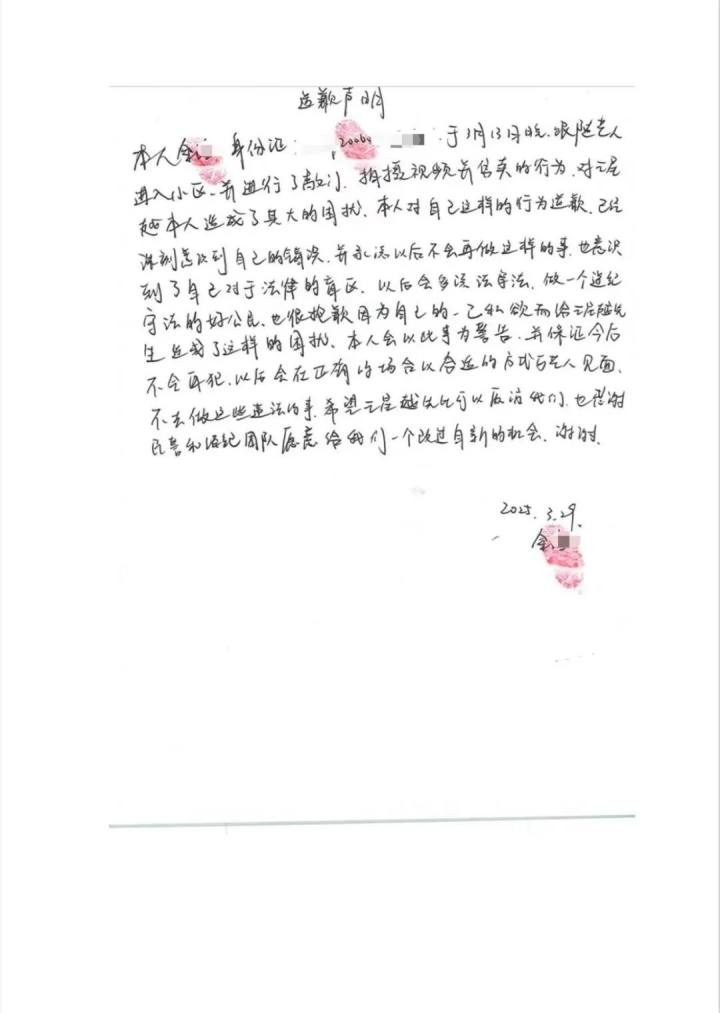 道歉声明
本人金 身份证: 2006 于3月13日晚,跟随艺人
进入小区、并进行了敲门、拍摄视频并售卖的行为,对王星
越本人造成了莫大的困扰,本人对自己这样的行为道歉,已经
深刻意识到自己的错误,并承诺以后不会再做这样的事,也意识
到了自己对于法律的盲区,以后会多读法守法,做一个遵纪
守法的好公民,也很抱歉因为自己的一己私欲而给王星越先
生造成了这样的困扰,本人会以此事为警告,并保证今后
不会再犯,以后会在正确的场合以合适的方式与艺人见面,
不去做这些违法的事,希望王星越先生予以原谅我们,也感谢
民警和经纪团队愿意给我们一个改过自新的机会,谢谢.
2025.3.29.
金